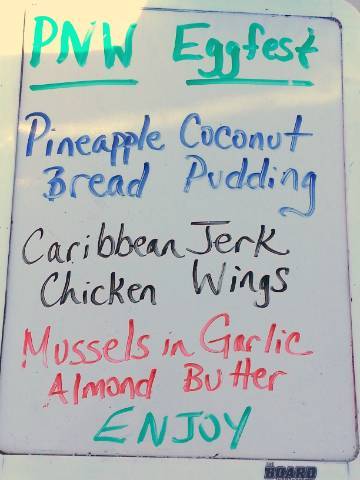 PNW Eggfest
Pineapple Coconut
Bread Pudding
Caribbean Jerk
Chicken Wings
Mussels in Garlic
Almond Butter
ENJOY
THE BOARD